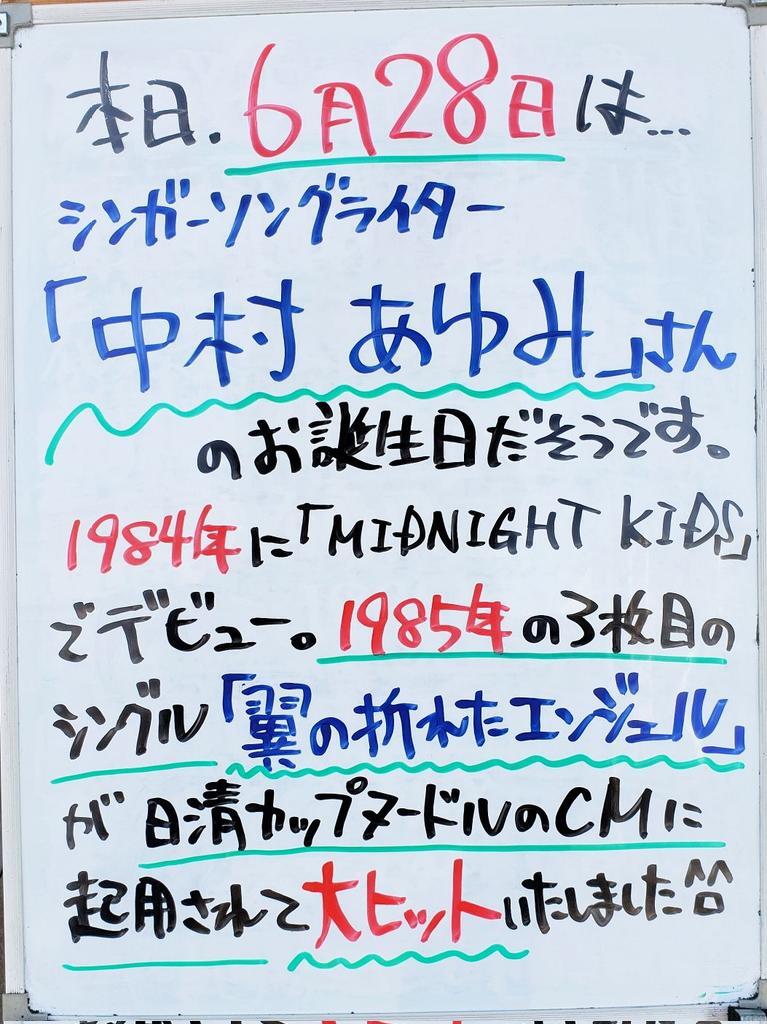 本日.6月28日は...
シンガーソングライター
「中村 あゆみ」さん
のお誕生日だそうです。
1984年に「MIDNIGHT KIDS」
でデビュー。1985年の3枚目の
シングル「翼の折れたエンジェル」
が日清カップヌードルのCMに
起用されて大ヒットいたしました^^